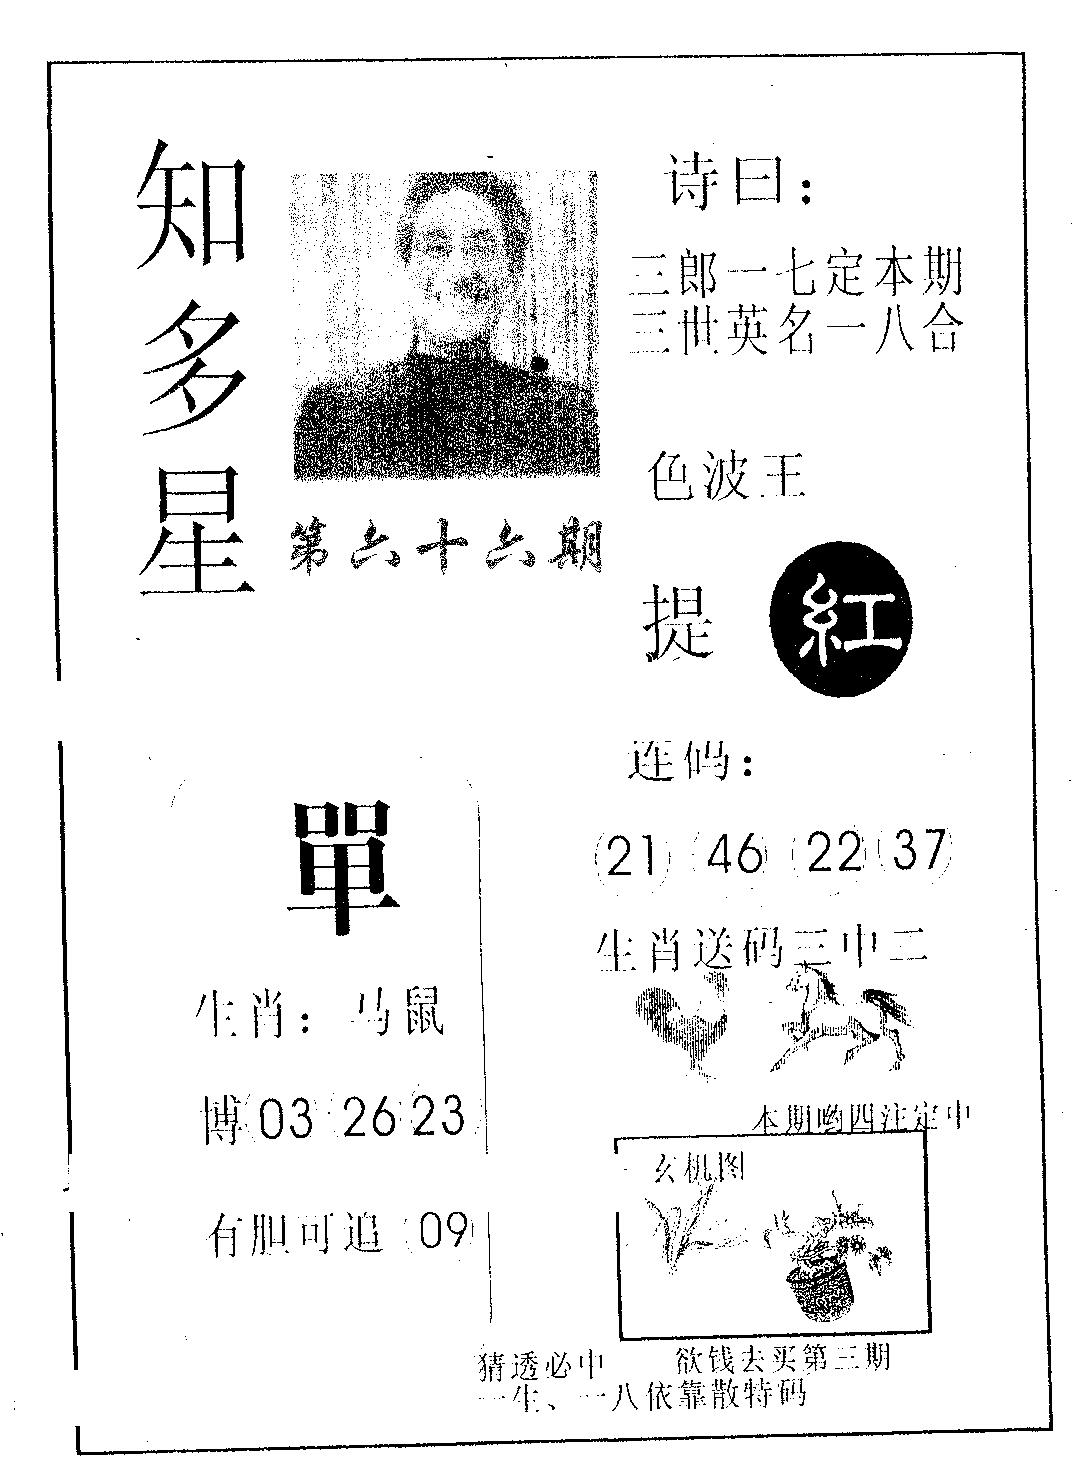 知多星
第六十六期
诗曰：
三郎一七定本期
三世英名一八合
色波王
提 紅
单
生肖：马鼠
博 03 26 23
有胆可追 09
连码：
21 46 22 37
生肖送码三中二
本期哟四注定中
玄机图
猜透必中 欲钱去买第三期
一生、一八依靠散特码